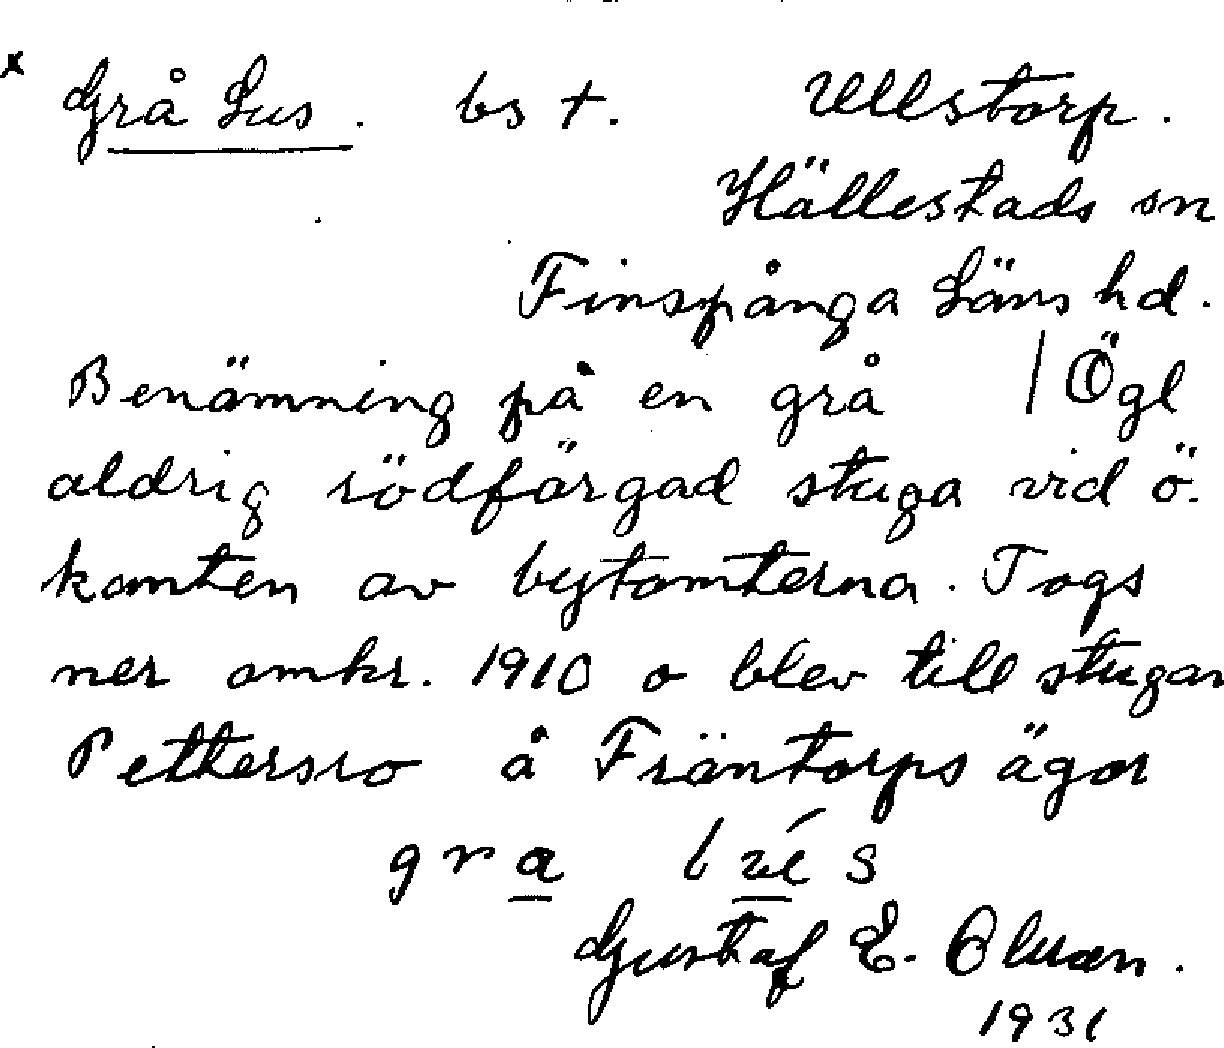 x Grå Lus. bs †. Ullstorp.
Hällestads sn
Finspånga Läns hd.
Benämning på en grå | Ögl
aldrig rödfärgad stuga vid ö.
kanten av bytomterna. Togs
ner omkr. 1910 o blev till stugan
Pettersro å Fräntorps ägor
gra
Gustaf E. Olsson.
1931